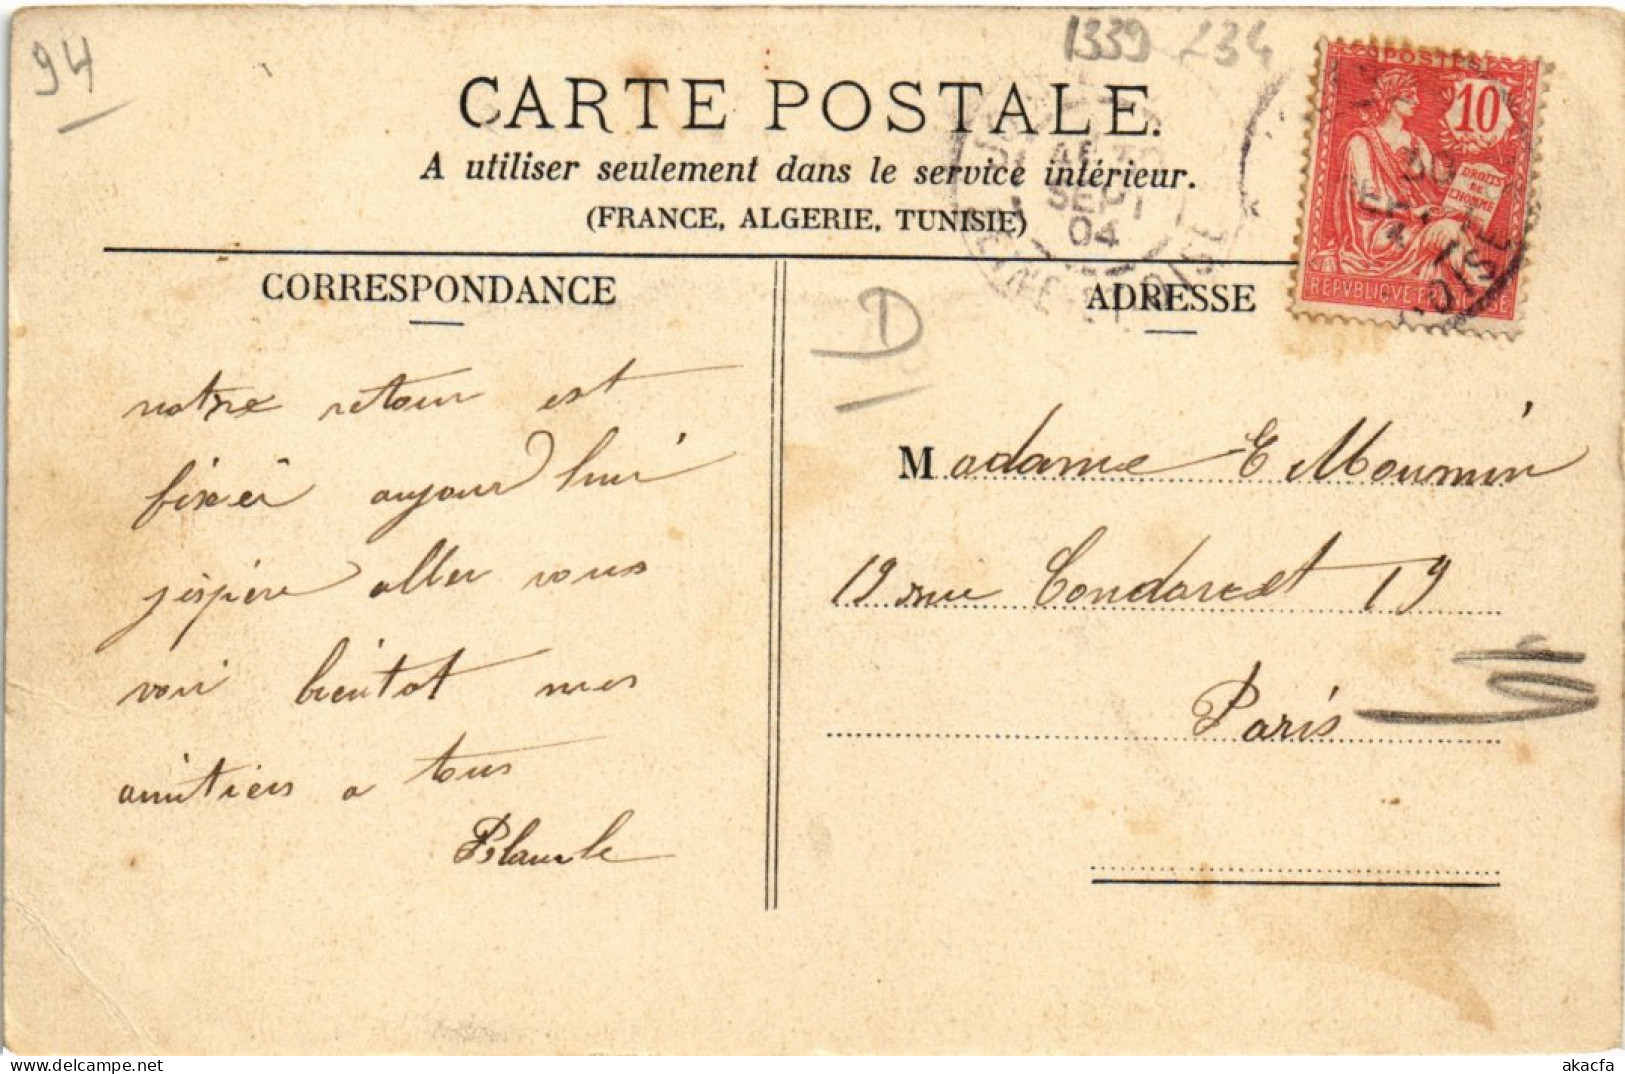 94
1339 234
CARTE POSTALE.
A utiliser seulement dans le service intérieur.
(FRANCE, ALGERIE, TUNISIE)
30
SEPT
04
SEINE ET OISE
POSTES
10
DROITS
DE
L'HOMME
REPVBLIQVE FRANÇAISE
CORRESPONDANCE
ADRESSE
D
notre retour est
fixé aujourd'hui
j'espère aller vous
voir bientot mes
amitiés a tous
Madame E Moumin
19 rue Condorcet 19
Paris
akacfa